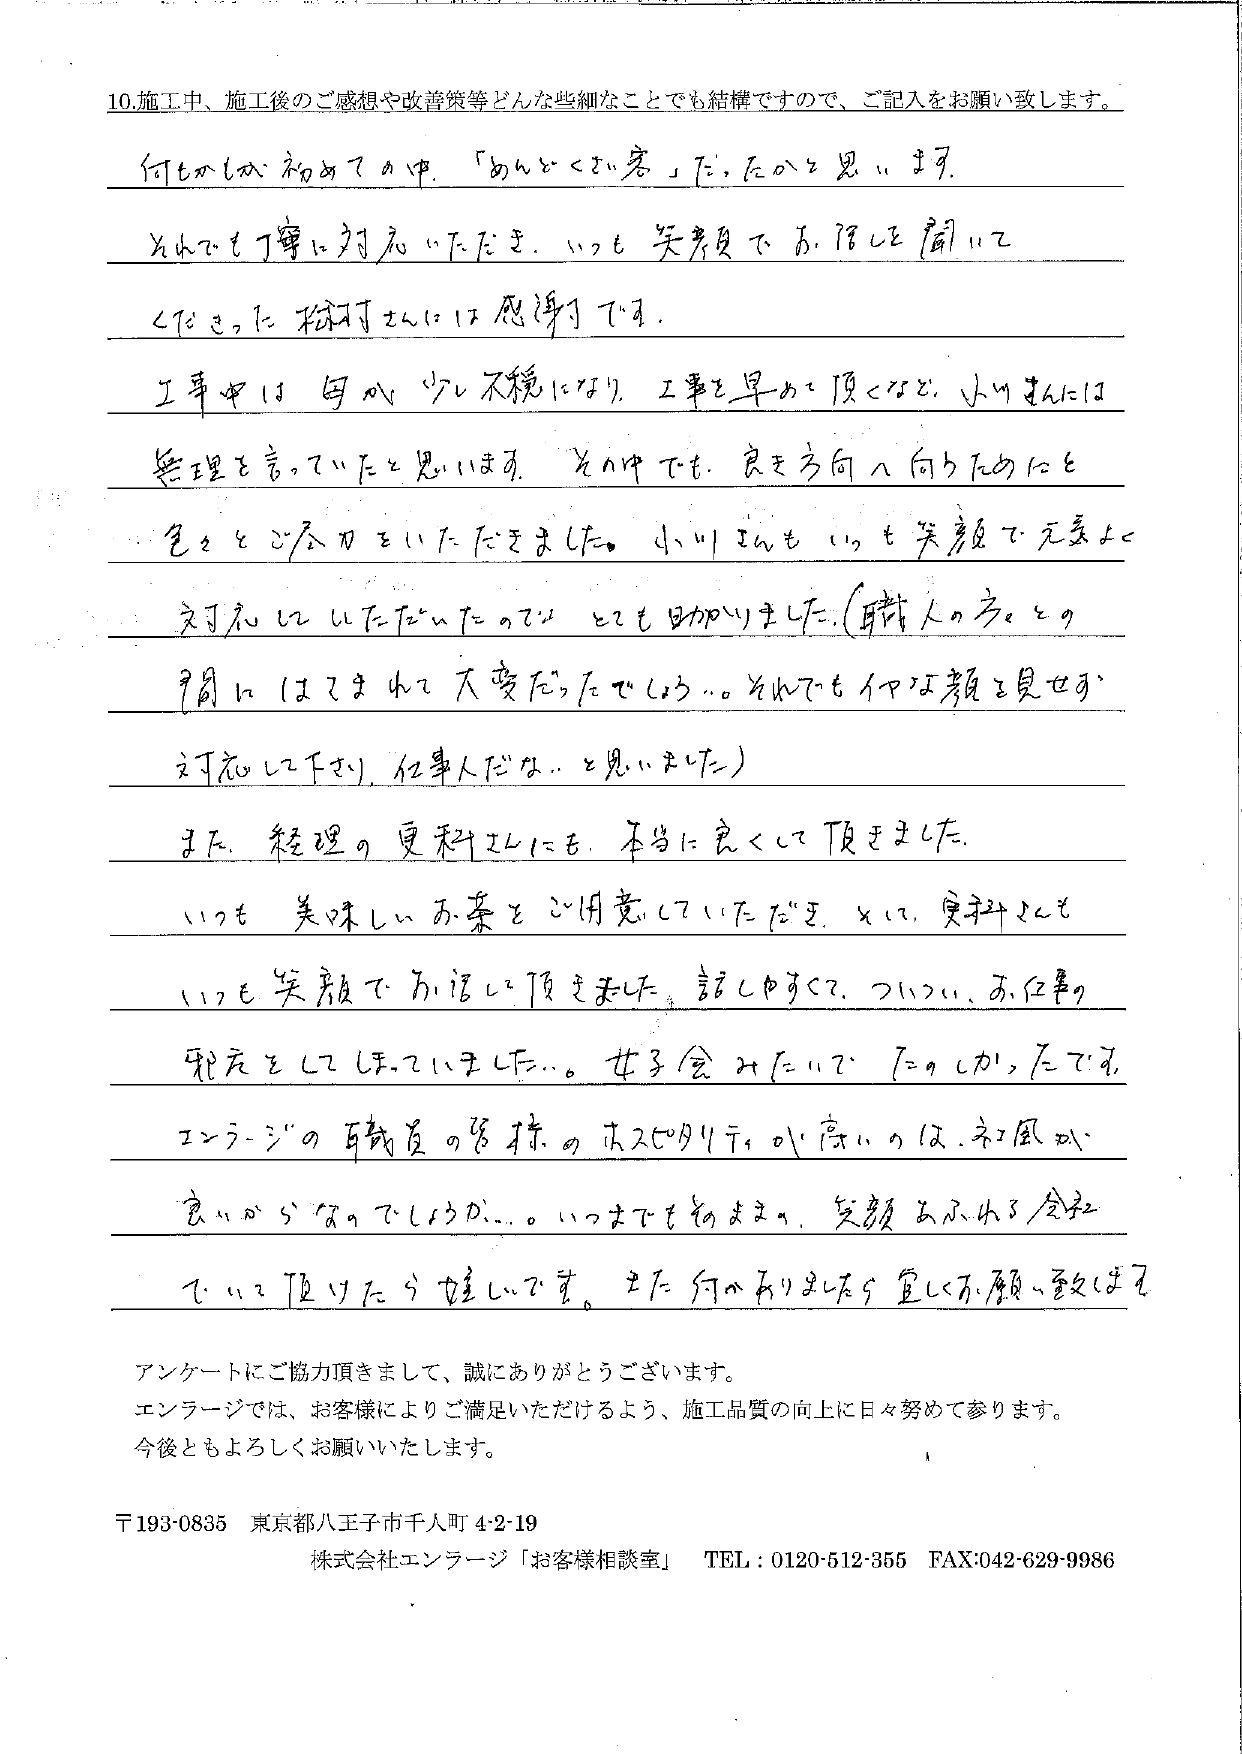 10.施工中、施工後のご感想や改善策等どんな些細なことでも結構ですので、ご記入をお願い致します。
何もかもが初めての中、「めんどくさい客」だったかと思います。
それでも丁寧に対応いただき、いつも笑顔でお話しを聞いて
くださった松村さんには感謝です。
工事中は母が少し不穏になり、工事を早めて頂くなど、小川さんには
無理を言っていたと思います。その中でも、良き方向へ向うためにと
色々とご尽力をいただきました。小川さんもいつも笑顔で元気よく
対応していただいたので とても助かりました。(職人の方々との
間にはさまれて大変だったでしょう…。それでもイヤな顔を見せず
対応して下さり、仕事人だな…と思いました)
また、経理の更科さんにも、本当に良くして頂きました。
いつも 美味しいお茶をご用意していただき、そして、更科さんも
いつも笑顔でお話して頂きました。話しやすくて、ついつい、お仕事の
邪魔をしてしまっていました…。女子会みたいで たのしかったです。
エンラージの職員の皆様のホスピタリティが高いのは、社風が
良いからなのでしょうか…。いつまでもそのままの、笑顔あふれる会社
でいて頂けたら嬉しいです。また何かありましたら宜しくお願い致します
アンケートにご協力頂きまして、誠にありがとうございます。
エンラージでは、お客様によりご満足いただけるよう、施工品質の向上に日々努めて参ります。
今後ともよろしくお願いいたします。
〒193-0835 東京都八王子市千人町 4-2-19
株式会社エンラージ「お客様相談室」 TEL : 0120-512-355 FAX:042-629-9986